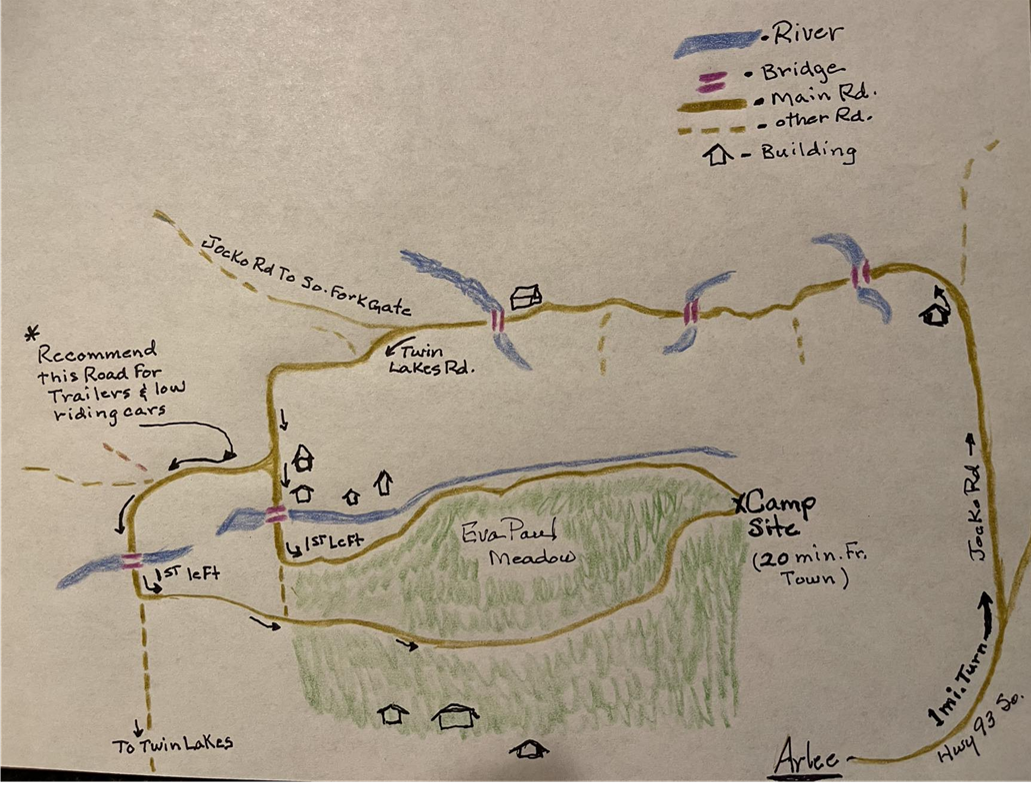 • River
• Bridge
• Main Rd.
- other Rd.
- Building
Jocko Rd To So. Fork Gate
*
Recommend
this Road For
Trailers & low
riding cars
Twin
Lakes Rd.
1ST Left
Eva Paul
Meadow
X Camp
Site
(20 min. Fr.
Town)
Jocko Rd →
1ST left
1 mi. Turn
Hwy 93 So.
To Twin Lakes
Arlee